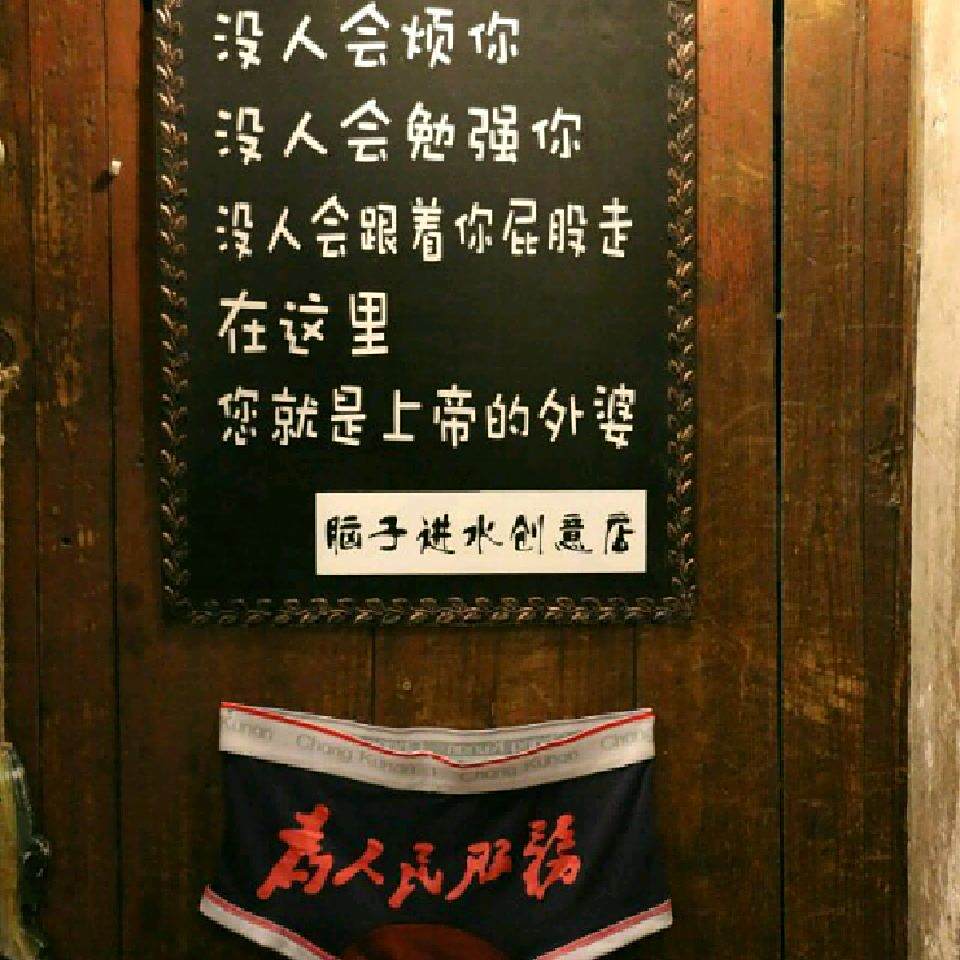 没人会烦你
没人会勉强你
没人会跟着你屁股走
在这里
您就是上帝的外婆
脑子进水创意店
Kunan Chang Kunan Chang Kunan
为人民服務